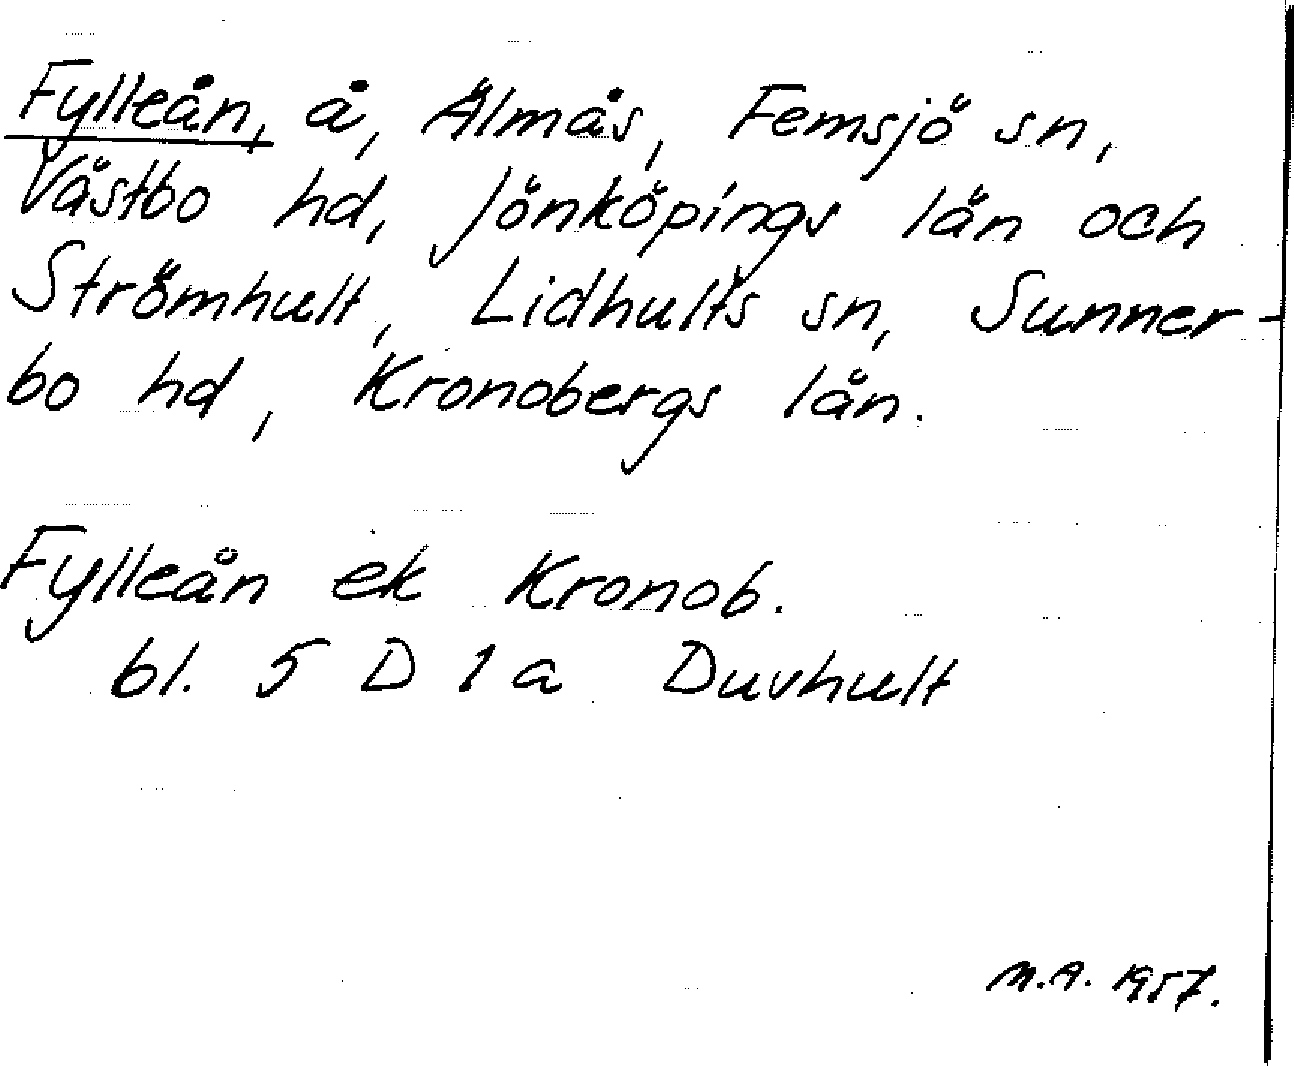 Fylleån, å, Älmås, Femsjö sn,
Västbo hd, Jönköpings län och
Strömhult, Lidhults sn, Sunner-
bo hd, Kronobergs län.
Fylleån ek Kronob.
bl. 5 D 1a Duvhult
M.A. 1957.